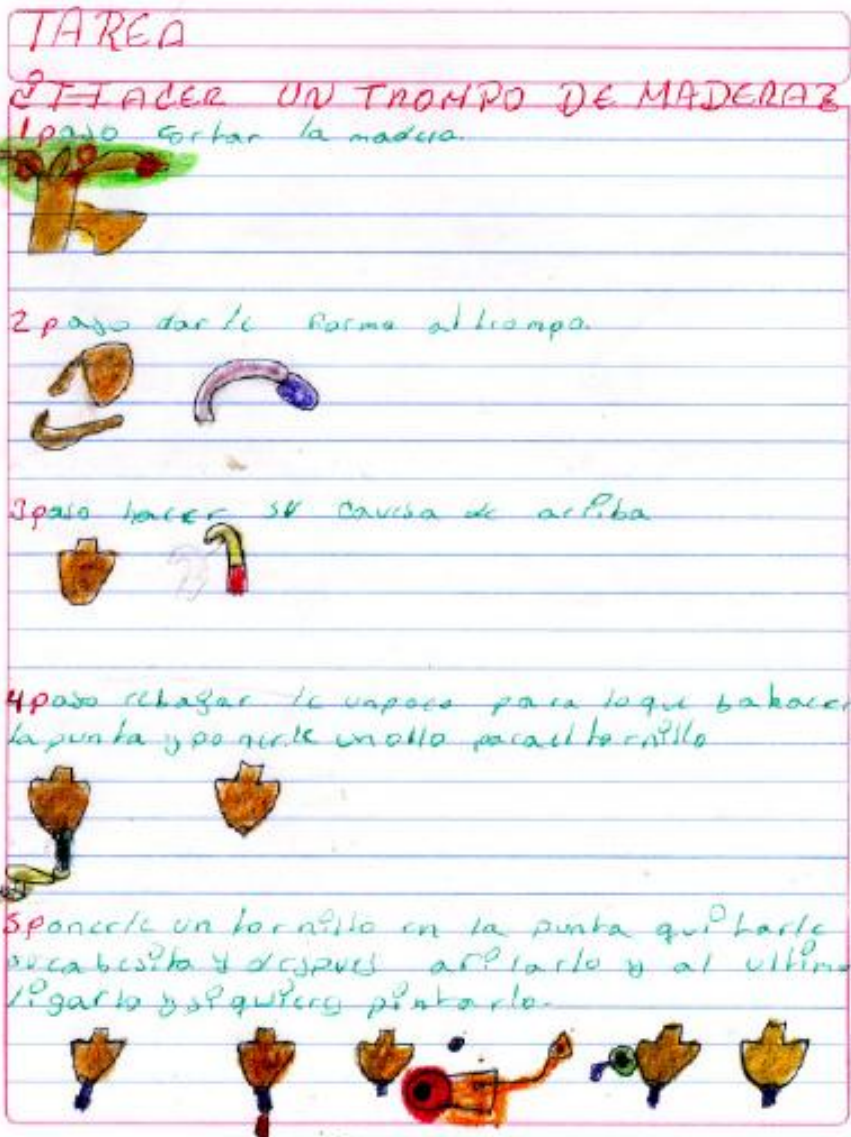 TAREA
HACER UN TROMPO DE MADERA
1 paso cortar la madera.
2 paso darle forma al trompo.
3 paso hacer su cavesa de arriba
4 paso rebagar le unpoco para loque bahacer
la punta y ponerle un ollo para el tornillo
5 ponerle un tornillo en la punta quitarle
sucabesita y despues afilarlo y al ultimo
ligarlo y si quieres pintarlo.